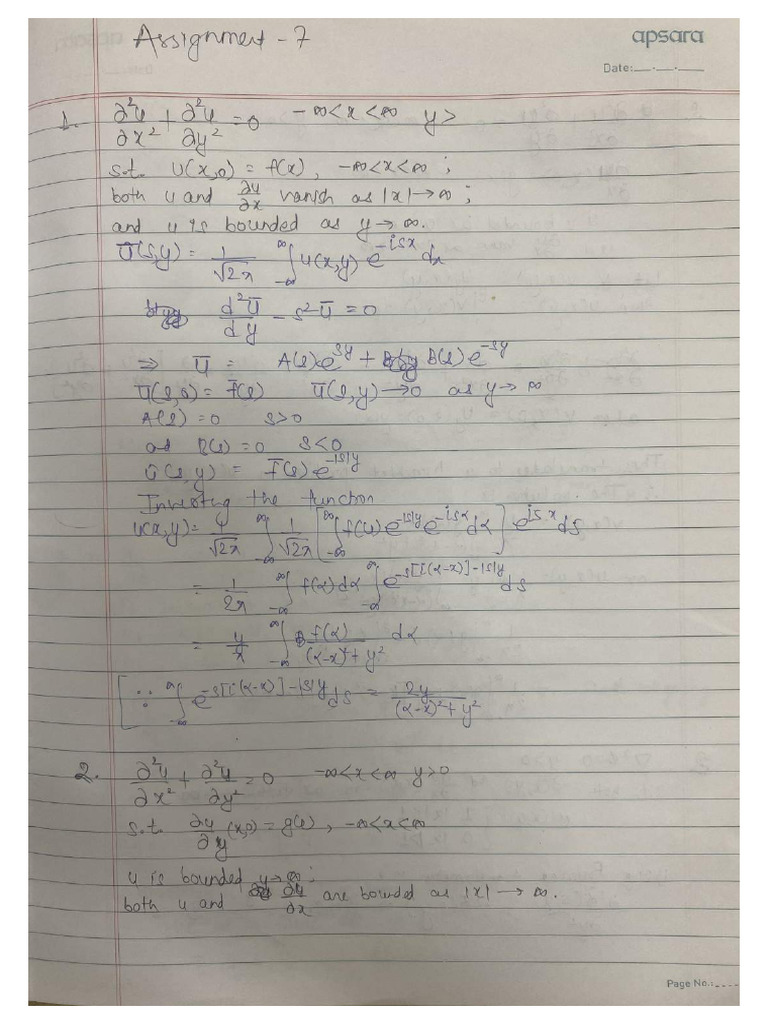 Assignment - 7
apsara
Date:__.__.__
1. ∂²u/∂x² + ∂²u/∂y² = 0 -∞<x<∞ y>
s.t. U(x,0) = f(x), -∞<x<∞ ;
both u and ∂u/∂x vanish as |x|→∞ ;
and u is bounded as y→∞.
Ū(s,y) = 1/√2π ∫_{-∞}^{∞} u(x,y) e^{-isx} dx
d²Ū/dy - s²Ū = 0
⇒ Ū = A(s)e^{sy} + B(s)e^{-sy}
Ū(s,0) = f̄(s) Ū(s,y)→0 as y→∞
A(s) = 0 s>0
and B(s) = 0 s<0
Ū(s,y) = f̄(s)e^{-|s|y}
Inverting the function
u(x,y) = 1/√2π ∫_{-∞}^{∞} 1/√2π [∫_{-∞}^{∞} f(u) e^{-|s|y} e^{-isα} dα] e^{is x} ds
= 1/2π ∫_{-∞}^{∞} f(α)dα ∫_{-∞}^{∞} e^{-s[i(α-x)]-|s|y} ds
= y/π ∫_{-∞}^{∞} f(α)/((α-x)²+y²) dα
[∵ ∫_{-∞}^{∞} e^{-s[i(α-x)]-|s|y} ds = 2y/((α-x)²+y²)
2. ∂²u/∂x² + ∂²u/∂y² = 0 -∞<x<∞ y>0
s.t. ∂u/∂y (x,0) = g(x), -∞<x<∞
u is bounded y→∞ ;
both u and ∂u/∂x are bounded as |x|→∞.
Page No.: